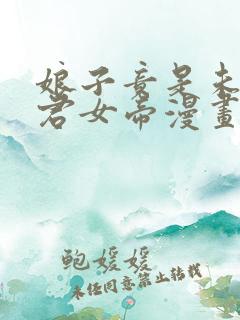 娘子竟是未
君女帝漫畫
鲍媛媛
未经同意禁止转载